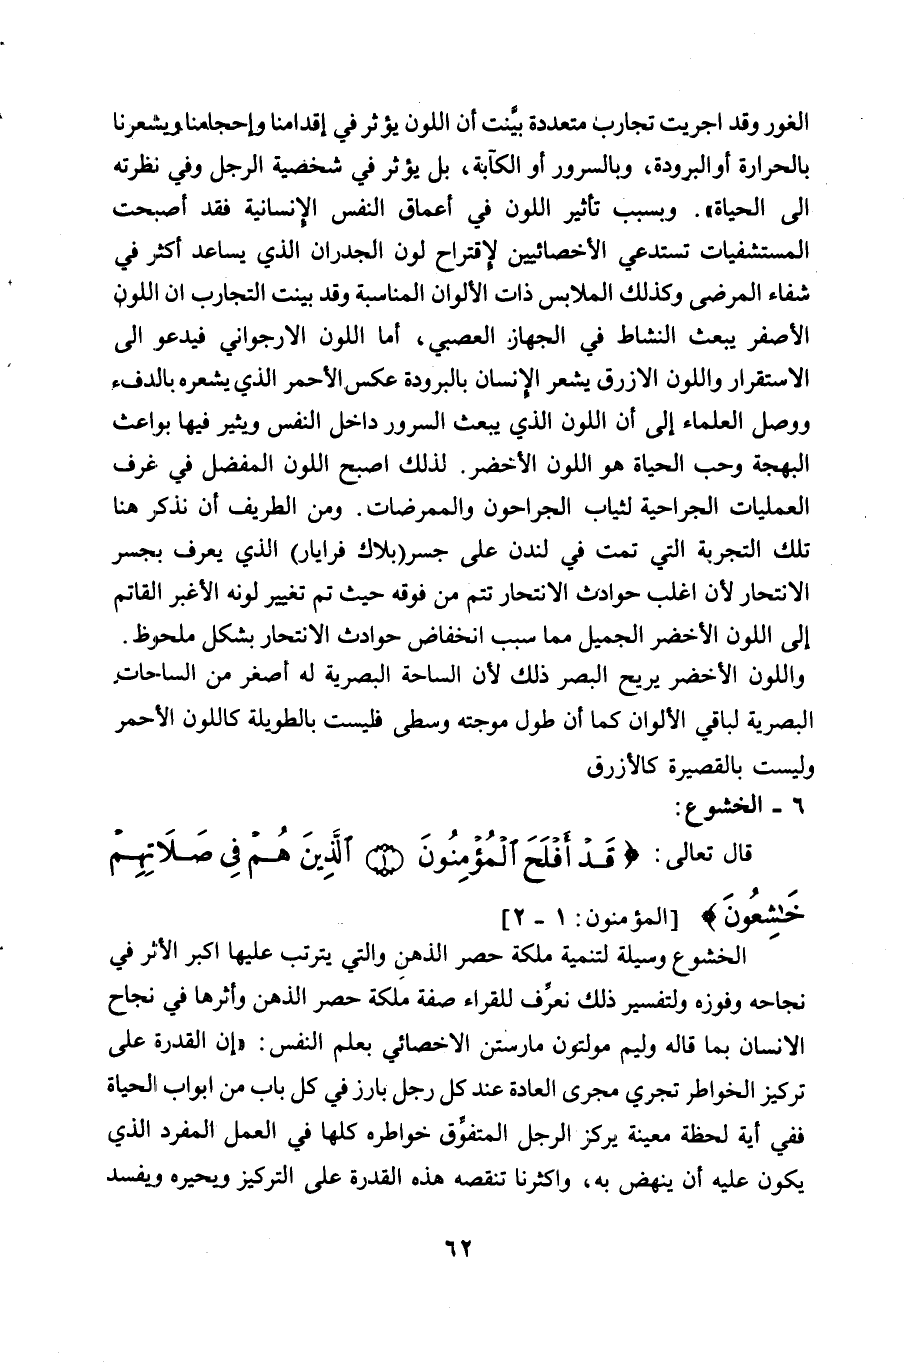 الغور وقد اجريت تجارب متعددة بيَّنت أن اللون يؤثر في إقدامنا وإحجامنا ويشعرنا
بالحرارة أو البرودة، وبالسرور أو الكآبة، بل يؤثر في شخصية الرجل وفي نظرته
الى الحياة». وبسبب تأثير اللون في أعماق النفس الإنسانية فقد أصبحت
المستشفيات تستدعي الأخصائيين لإقتراح لون الجدران الذي يساعد أكثر في
شفاء المرضى وكذلك الملابس ذات الألوان المناسبة وقد بينت التجارب ان اللون
الأصفر يبعث النشاط في الجهاز العصبي، أما اللون الارجواني فيدعو الى
الاستقرار واللون الازرق يشعر الإنسان بالبرودة عكس الأحمر الذي يشعره بالدفء
ووصل العلماء إلى أن اللون الذي يبعث السرور داخل النفس ويثير فيها بواعث
البهجة وحب الحياة هو اللون الأخضر. لذلك اصبح اللون المفضل في غرف
العمليات الجراحية لثياب الجراحون والممرضات. ومن الطريف أن نذكر هنا
تلك التجربة التي تمت في لندن على جسر (بلاك فرايار) الذي يعرف بجسر
الانتحار لأن اغلب حوادث الانتحار تتم من فوقه حيث تم تغيير لونه الأغبر القاتم
إلى اللون الأخضر الجميل مما سبب انخفاض حوادث الانتحار بشكل ملحوظ.
واللون الأخضر يريح البصر ذلك لأن الساحة البصرية له أصغر من الساحات
البصرية لباقي الألوان كما أن طول موجته وسطى فليست بالطويلة كاللون الأحمر
وليست بالقصيرة كالأزرق
٦ - الخشوع:
قال تعالى: ﴿ قَدْ أَفْلَحَ ٱلْمُؤْمِنُونَ ﴿١﴾ ٱلَّذِينَ هُمْ فِي صَلَاتِهِمْ
خَٰشِعُونَ ﴾ [المؤمنون: ١ - ٢]
الخشوع وسيلة لتنمية ملكة حصر الذهن والتي يترتب عليها اكبر الأثر في
نجاحه وفوزه ولتفسير ذلك نعرِّف للقراء صفة ملكة حصر الذهن وأثرها في نجاح
الانسان بما قاله وليم مولتون مارستن الاخصائي بعلم النفس: «إن القدرة على
تركيز الخواطر تجري مجرى العادة عند كل رجل بارز في كل باب من ابواب الحياة
ففي أية لحظة معينة يركز الرجل المتفوِّق خواطره كلها في العمل المفرد الذي
يكون عليه أن ينهض به، واكثرنا تنقصه هذه القدرة على التركيز ويحيره ويفسد
٦٢